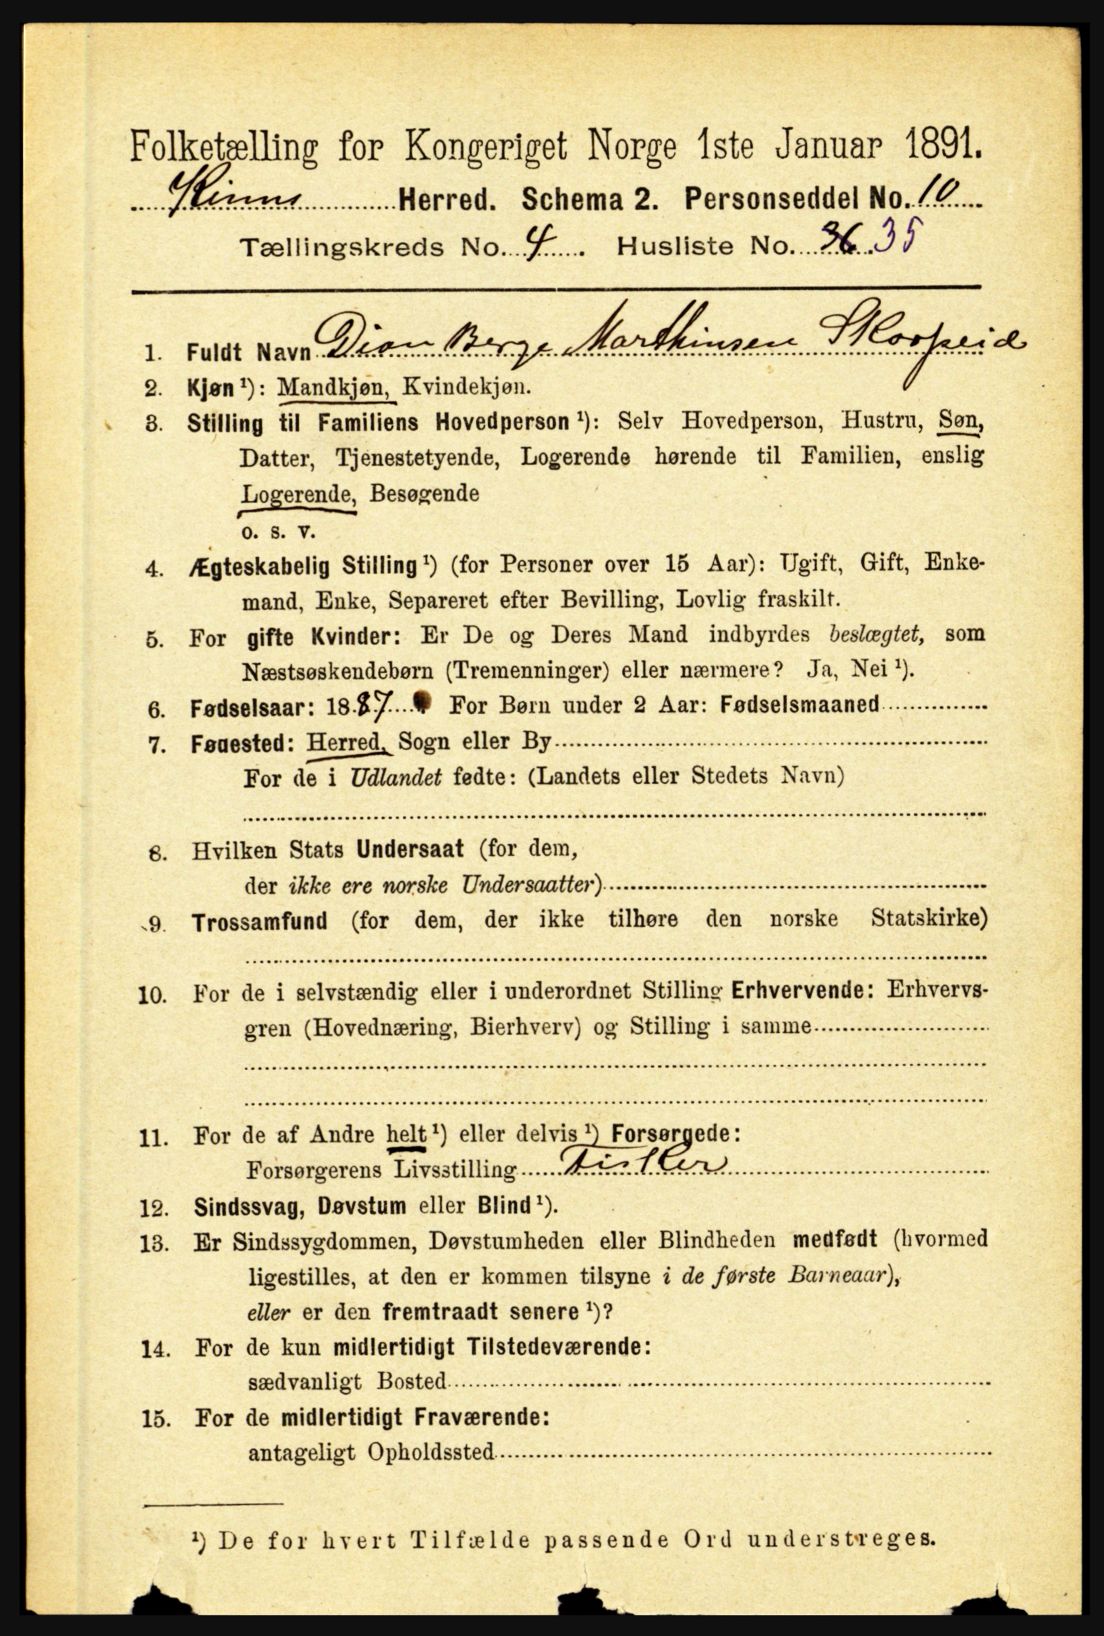 Folketælling for Kongeriget Norge 1ste Januar 1891.
Kinns Herred. Schema 2. Personseddel No. 10
Tællingskreds No. 4. Husliste No. 36 35
1. Fuldt Navn Dion Berge Marthinsen Skorpeid
2. Kjøn ¹): Mandkjøn, Kvindekjøn.
3. Stilling til Familiens Hovedperson ¹): Selv Hovedperson, Hustru, Søn,
Datter, Tjenestetyende, Logerende hørende til Familien, enslig
Logerende, Besøgende
o. s. v.
4. Ægteskabelig Stilling ¹) (for Personer over 15 Aar): Ugift, Gift, Enke-
mand, Enke, Separeret efter Bevilling, Lovlig fraskilt.
5. For gifte Kvinder: Er De og Deres Mand indbyrdes beslægtet, som
Næstsøskendebørn (Tremenninger) eller nærmere? Ja, Nei ¹).
6. Fødselsaar: 1887 For Børn under 2 Aar: Fødselsmaaned
7. Fødested: Herred, Sogn eller By
For de i Udlandet fødte: (Landets eller Stedets Navn)
8. Hvilken Stats Undersaat (for dem,
der ikke ere norske Undersaatter)
9. Trossamfund (for dem, der ikke tilhøre den norske Statskirke)
10. For de i selvstændig eller i underordnet Stilling Erhvervende: Erhvervs-
gren (Hovednæring, Bierhverv) og Stilling i samme
11. For de af Andre helt ¹) eller delvis ¹) Forsørgede:
Forsørgerens Livsstilling Fisker
12. Sindssvag, Døvstum eller Blind ¹).
13. Er Sindssygdommen, Døvstumheden eller Blindheden medfødt (hvormed
ligestilles, at den er kommen tilsyne i de første Barneaar),
eller er den fremtraadt senere ¹)?
14. For de kun midlertidigt Tilstedeværende:
sædvanligt Bosted
15. For de midlertidigt Fraværende:
antageligt Opholdssted
¹) De for hvert Tilfælde passende Ord understreges.